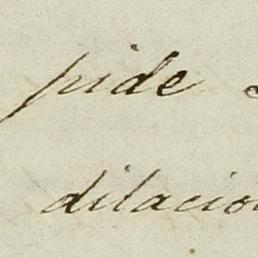 pide
dilacio